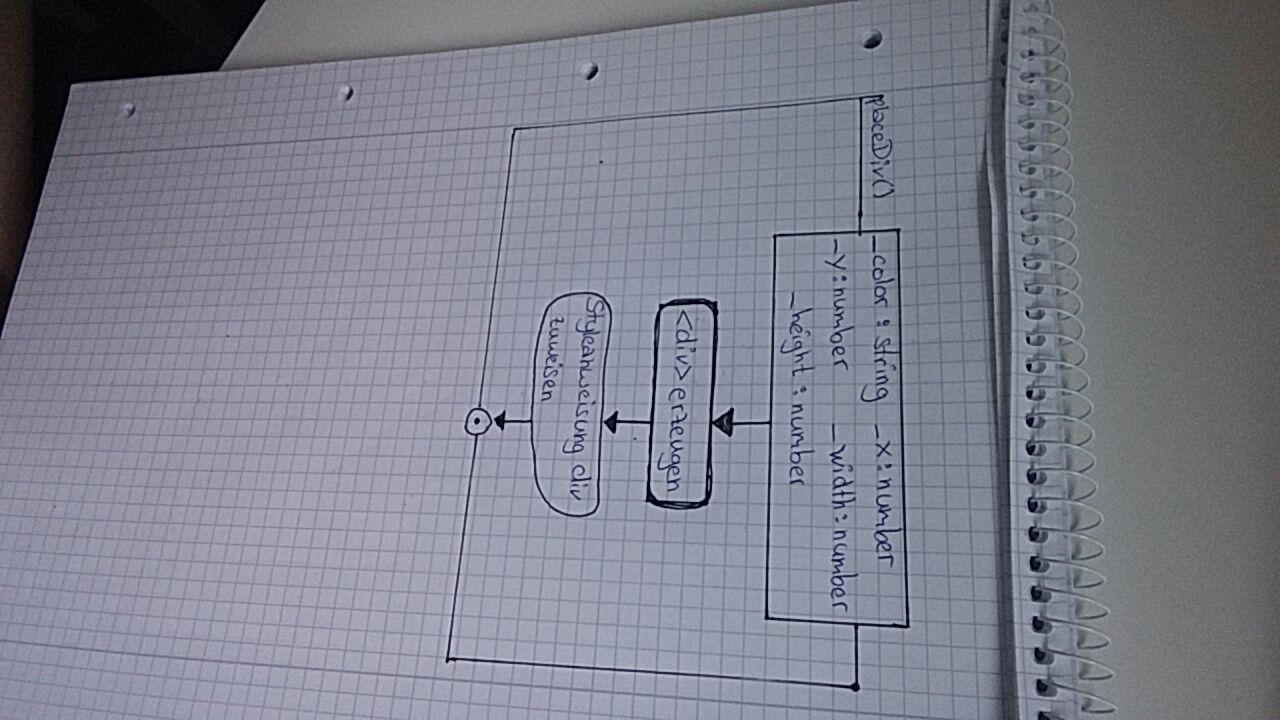 placeDiv()
_color : string _x : number
_y : number _width : number
_height : number
<div> erzeugen
Styleanweisung div
zuweisen